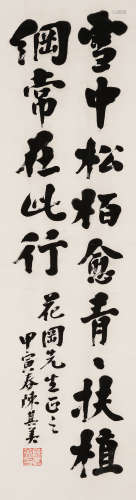 雪中松柏愈青〻扶植
綱常在此行
花岡先生正之
甲寅春陳其美